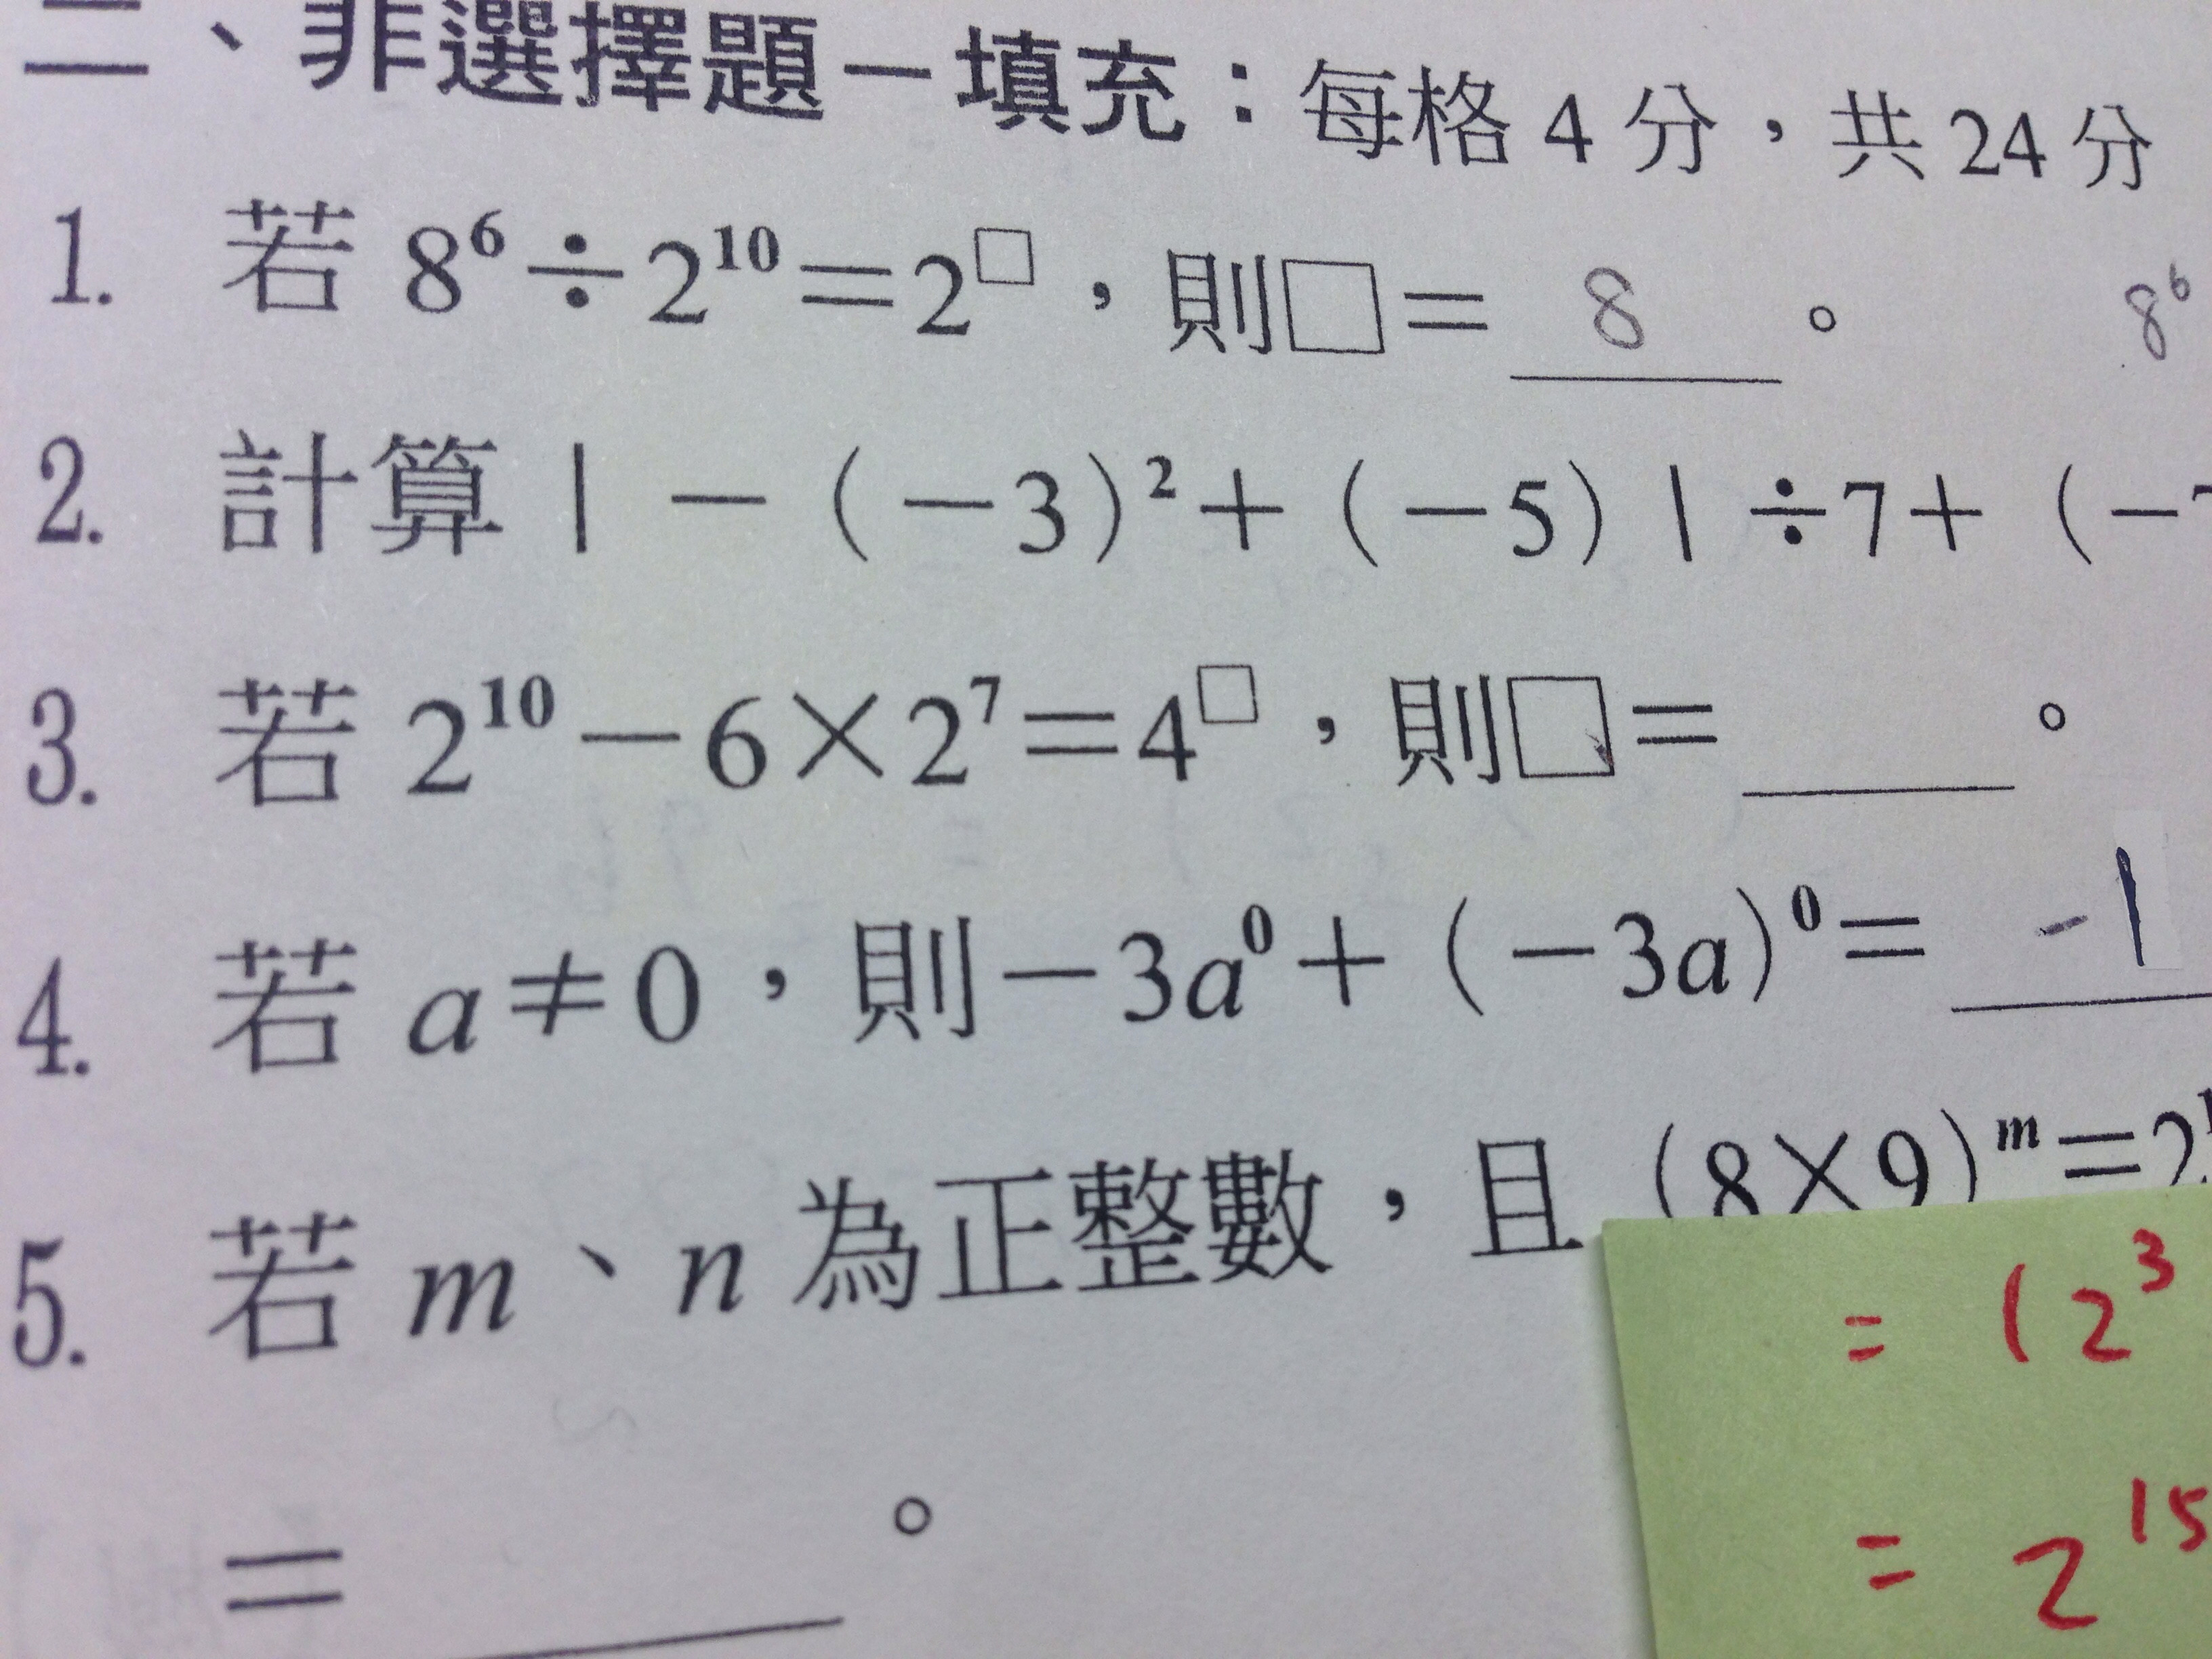 二、非選擇題－填充：每格 4 分，共 24 分
1. 若 8⁶÷2¹⁰＝2^□，則□＝ 8 。 8⁶
2. 計算｜－（－3）²＋（－5）｜÷7＋（－
3. 若 2¹⁰－6×2⁷＝4^□，則□＝ 。
4. 若 a≠0，則－3a⁰＋（－3a）⁰＝ -1
5. 若 m、n 為正整數，且（8×9）ᵐ＝2
= (2³
= 2¹⁵
＝ 。